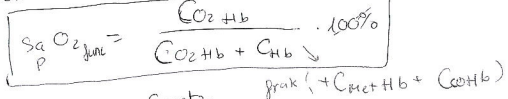 SaO₂ func = CO₂Hb / (CO₂Hb + CHb) · 100%
p
frak (+CMetHb + CCOHb)